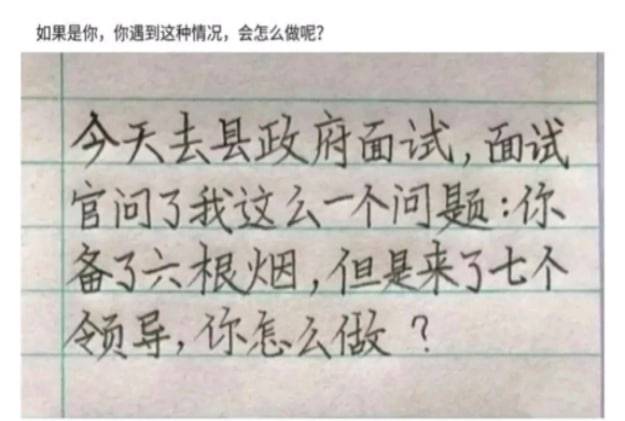 如果是你，你遇到这种情况，会怎么做呢？
今天去县政府面试，面试
官问了我这么一个问题：你
备了六根烟，但是来了七个
领导，你怎么做？